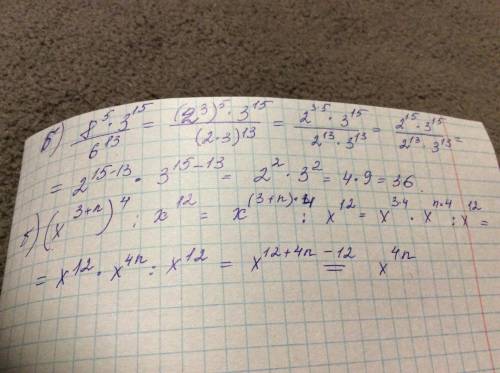 б) 8⁵·3¹⁵ / 6¹³ = (2³)⁵·3¹⁵ / (2·3)¹³ = 2³·⁵·3¹⁵ / 2¹³·3¹³ = 2¹⁵·3¹⁵ / 2¹³·3¹³ =
= 2¹⁵⁻¹³·3¹⁵⁻¹³ = 2²·3² = 4·9 = 36.
б) (x³⁺ⁿ)⁴ : x¹² = x⁽³⁺ⁿ⁾·⁴ : x¹² = x³·⁴·xⁿ·⁴ : x¹² =
= x¹²·x⁴ⁿ : x¹² = x¹²⁺⁴ⁿ⁻¹² = x⁴ⁿ